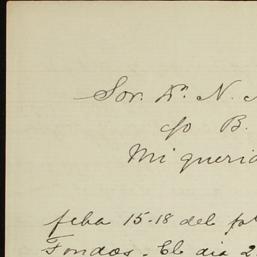 Sor. Dn. N.
c/o B.
Mi querid
feha 15-18 del
Fondos. El dia 2